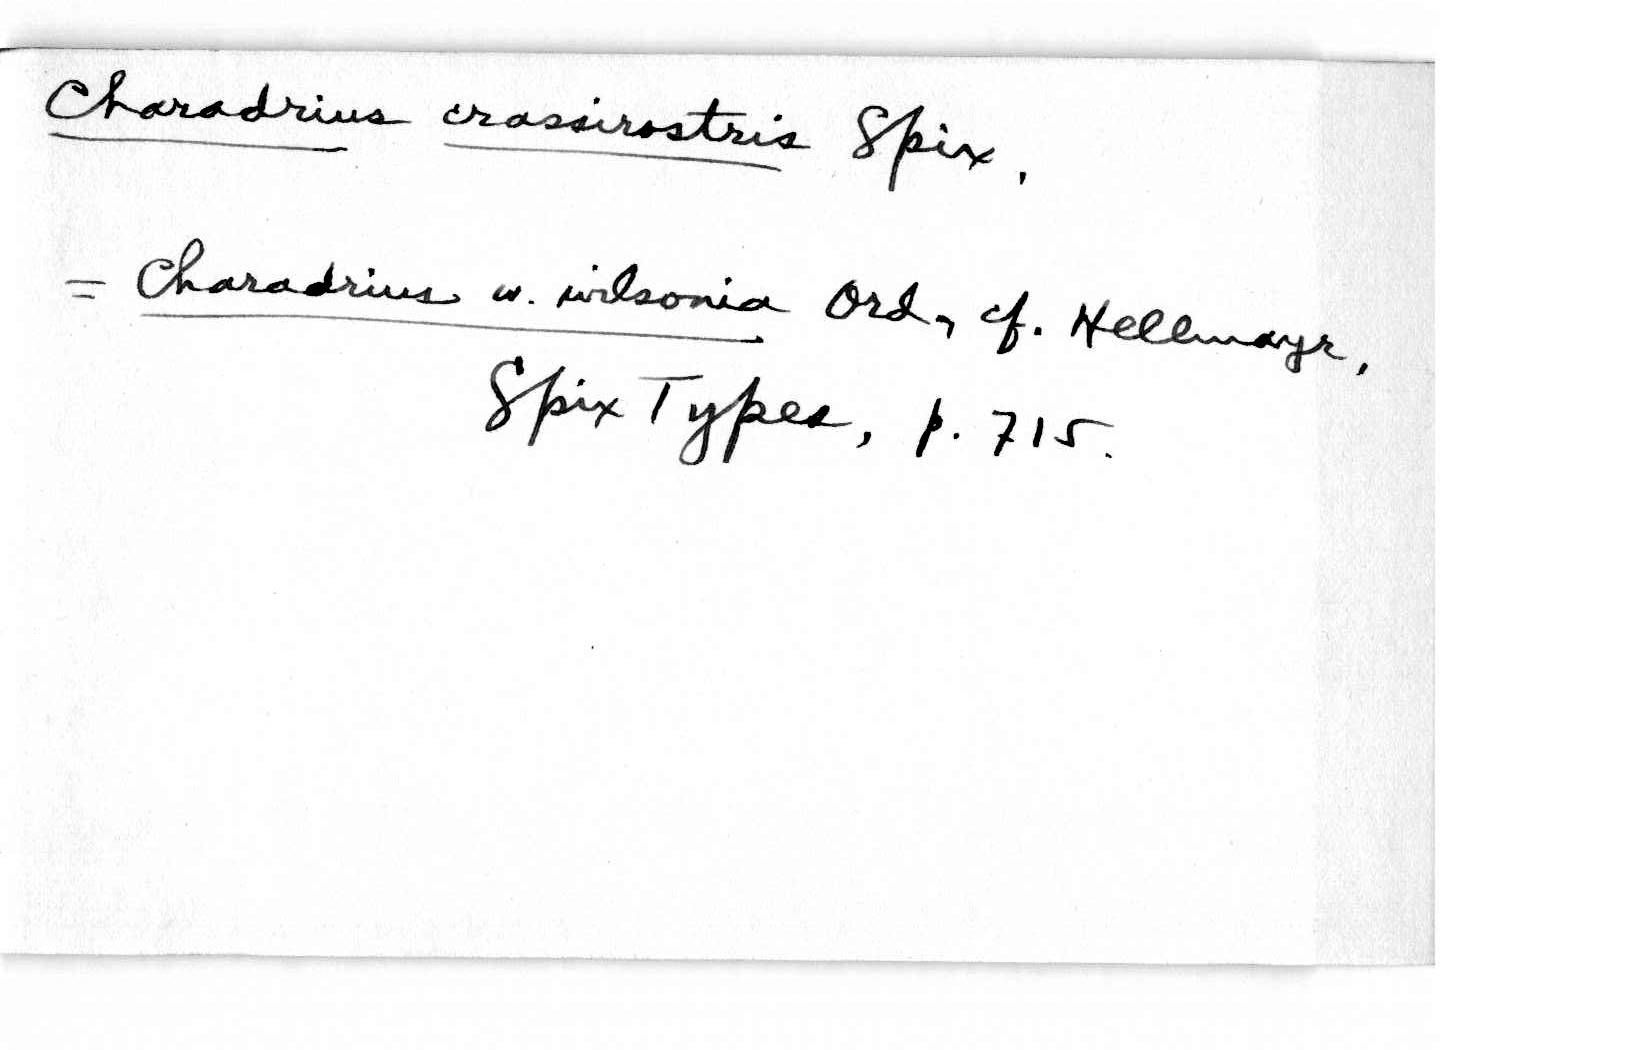 Charadrius crassirostris Spix.
= Charadrius w. wilsonia Ord, cf. Hellmayr,
Spix Types, p. 715.